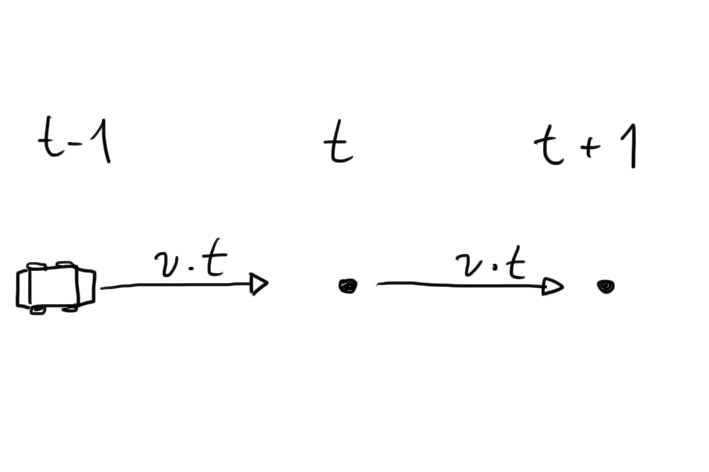 t-1 t t + 1
v.t v.t